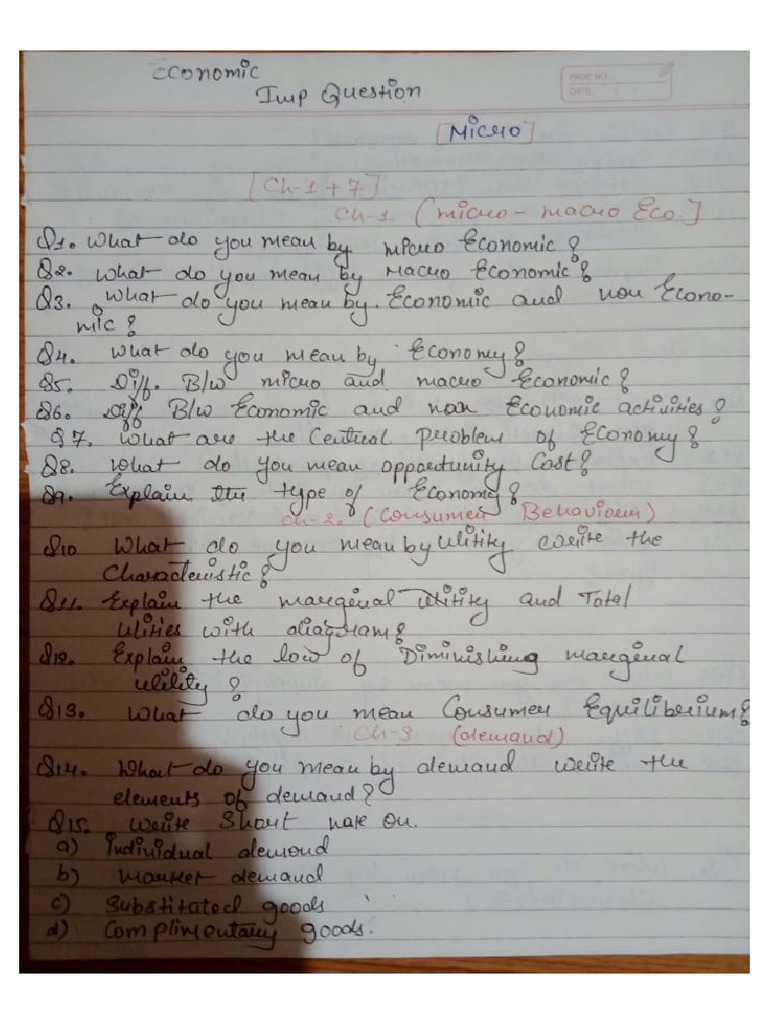 Economic
Imp Question
PAGE NO.
DATE:
[Micro]
[Ch-1+7]
Ch-1. (micro-macro Eco.]
Q1. What do you mean by micro Economic?
Q2. What do you mean by Macro Economic?
Q3. What do you mean by. Economic and non Econo-
mic?
Q4. What do you mean by Economy?
Q5. Diff. B/w micro and macro Economic?
Q6. Diff B/w Economic and non Economic activities?
Q7. What are the Central problem of Economy?
Q8. What do you mean opportunity Cost?
Q9. Explain the type of Economy?
Ch-2. (Consumer Behaviour)
Q10 What do you mean by Utility write the
Characteristic?
Q11. Explain the marginal utility and Total
Utities with diagram?
Q12. Explain the low of Diminishing marginal
utility?
Q13. What do you mean Consumer Equiliberium?
Ch-3 (demand)
Q14. What do you mean by demand write the
elements of demand?
Q15. Write Short note on.
a) Individual demand
b) Market demand
c) Substitated goods
d) Complimentary goods.